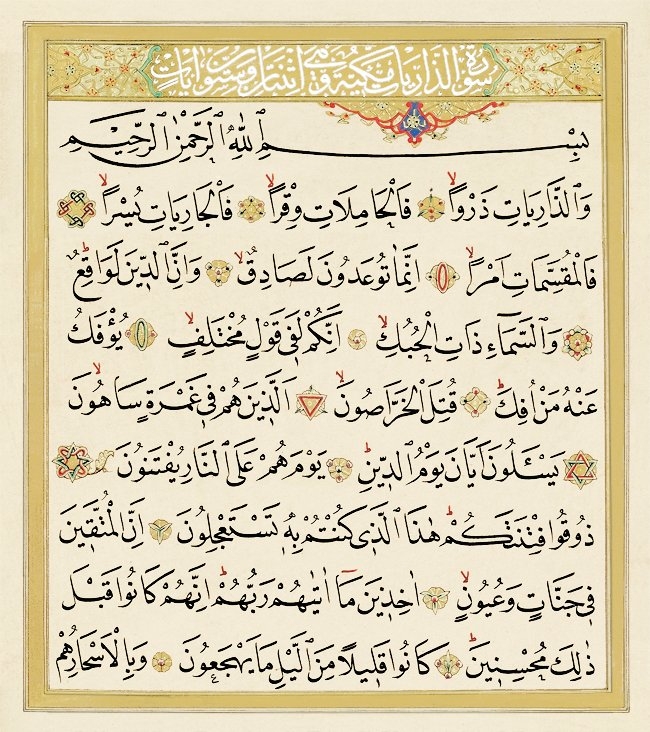 سورة الذاريات مكية وهي اثنتان وستون آيات
بِسْمِ اللّٰهِ الرَّحْمٰنِ الرَّحِيمِ
وَالذَّارِيَاتِ ذَرْوًاۙ فَالْحَامِلَاتِ وِقْرًاۙ فَالْجَارِيَاتِ يُسْرًاۙ
فَالْمُقَسِّمَاتِ اَمْرًاۙ اِنَّمَا تُوعَدُونَ لَصَادِقٌۙ وَاِنَّ الدِّينَ لَوَاقِعٌۜ
وَالسَّمَٓاءِ ذَاتِ الْحُبُكِۙ اِنَّكُمْ لَفِي قَوْلٍ مُخْتَلِفٍۙ يُؤْفَكُ
عَنْهُ مَنْ اُفِكَۜ قُتِلَ الْخَرَّاصُونَۙ اَلَّذِينَ هُمْ فِي غَمْرَةٍ سَاهُونَۙ
يَسْـَٔلُونَ اَيَّانَ يَوْمُ الدِّينِۜ يَوْمَ هُمْ عَلَى النَّارِ يُفْتَنُونَ
ذُوقُوا فِتْنَتَكُمْۜ هٰذَا الَّذِي كُنْتُمْ بِهِ تَسْتَعْجِلُونَ اِنَّ الْمُتَّقِينَ
فِي جَنَّاتٍ وَعُيُونٍۙ اٰخِذِينَ مَٓا اٰتٰيهُمْ رَبُّهُمْۜ اِنَّهُمْ كَانُوا قَبْلَ
ذٰلِكَ مُحْسِنِينَۜ كَانُوا قَلِيلًا مِنَ الَّيْلِ مَا يَهْجَعُونَ وَبِالْاَسْحَارِ هُمْ